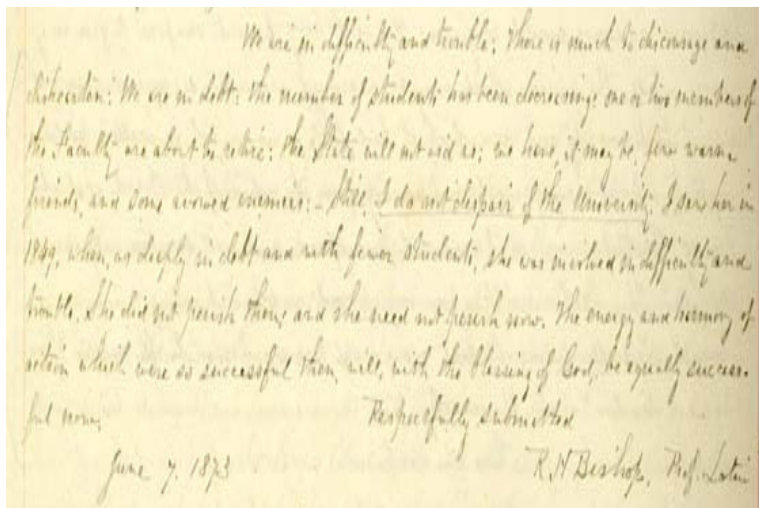 We are in difficulty and trouble; There is much to discourage and
dishearten: We are in debt: the number of students has been decreasing: one or two members of
the Faculty are about to retire: the State will not aid us; we have, it may be, few warm
friends, and some avowed enemies: - Still, I do not despair of the University. I saw her in
1849, when, as deeply in debt and with fewer students, she was involved in difficulty and
trouble. She did not perish then; and she need not perish now. The energy and harmony of
action which were so successful then, will, with the blessing of God, be equally success-
ful now.
Respectfully submitted
June 7. 1873
R. H Bishop, Prof. Latin